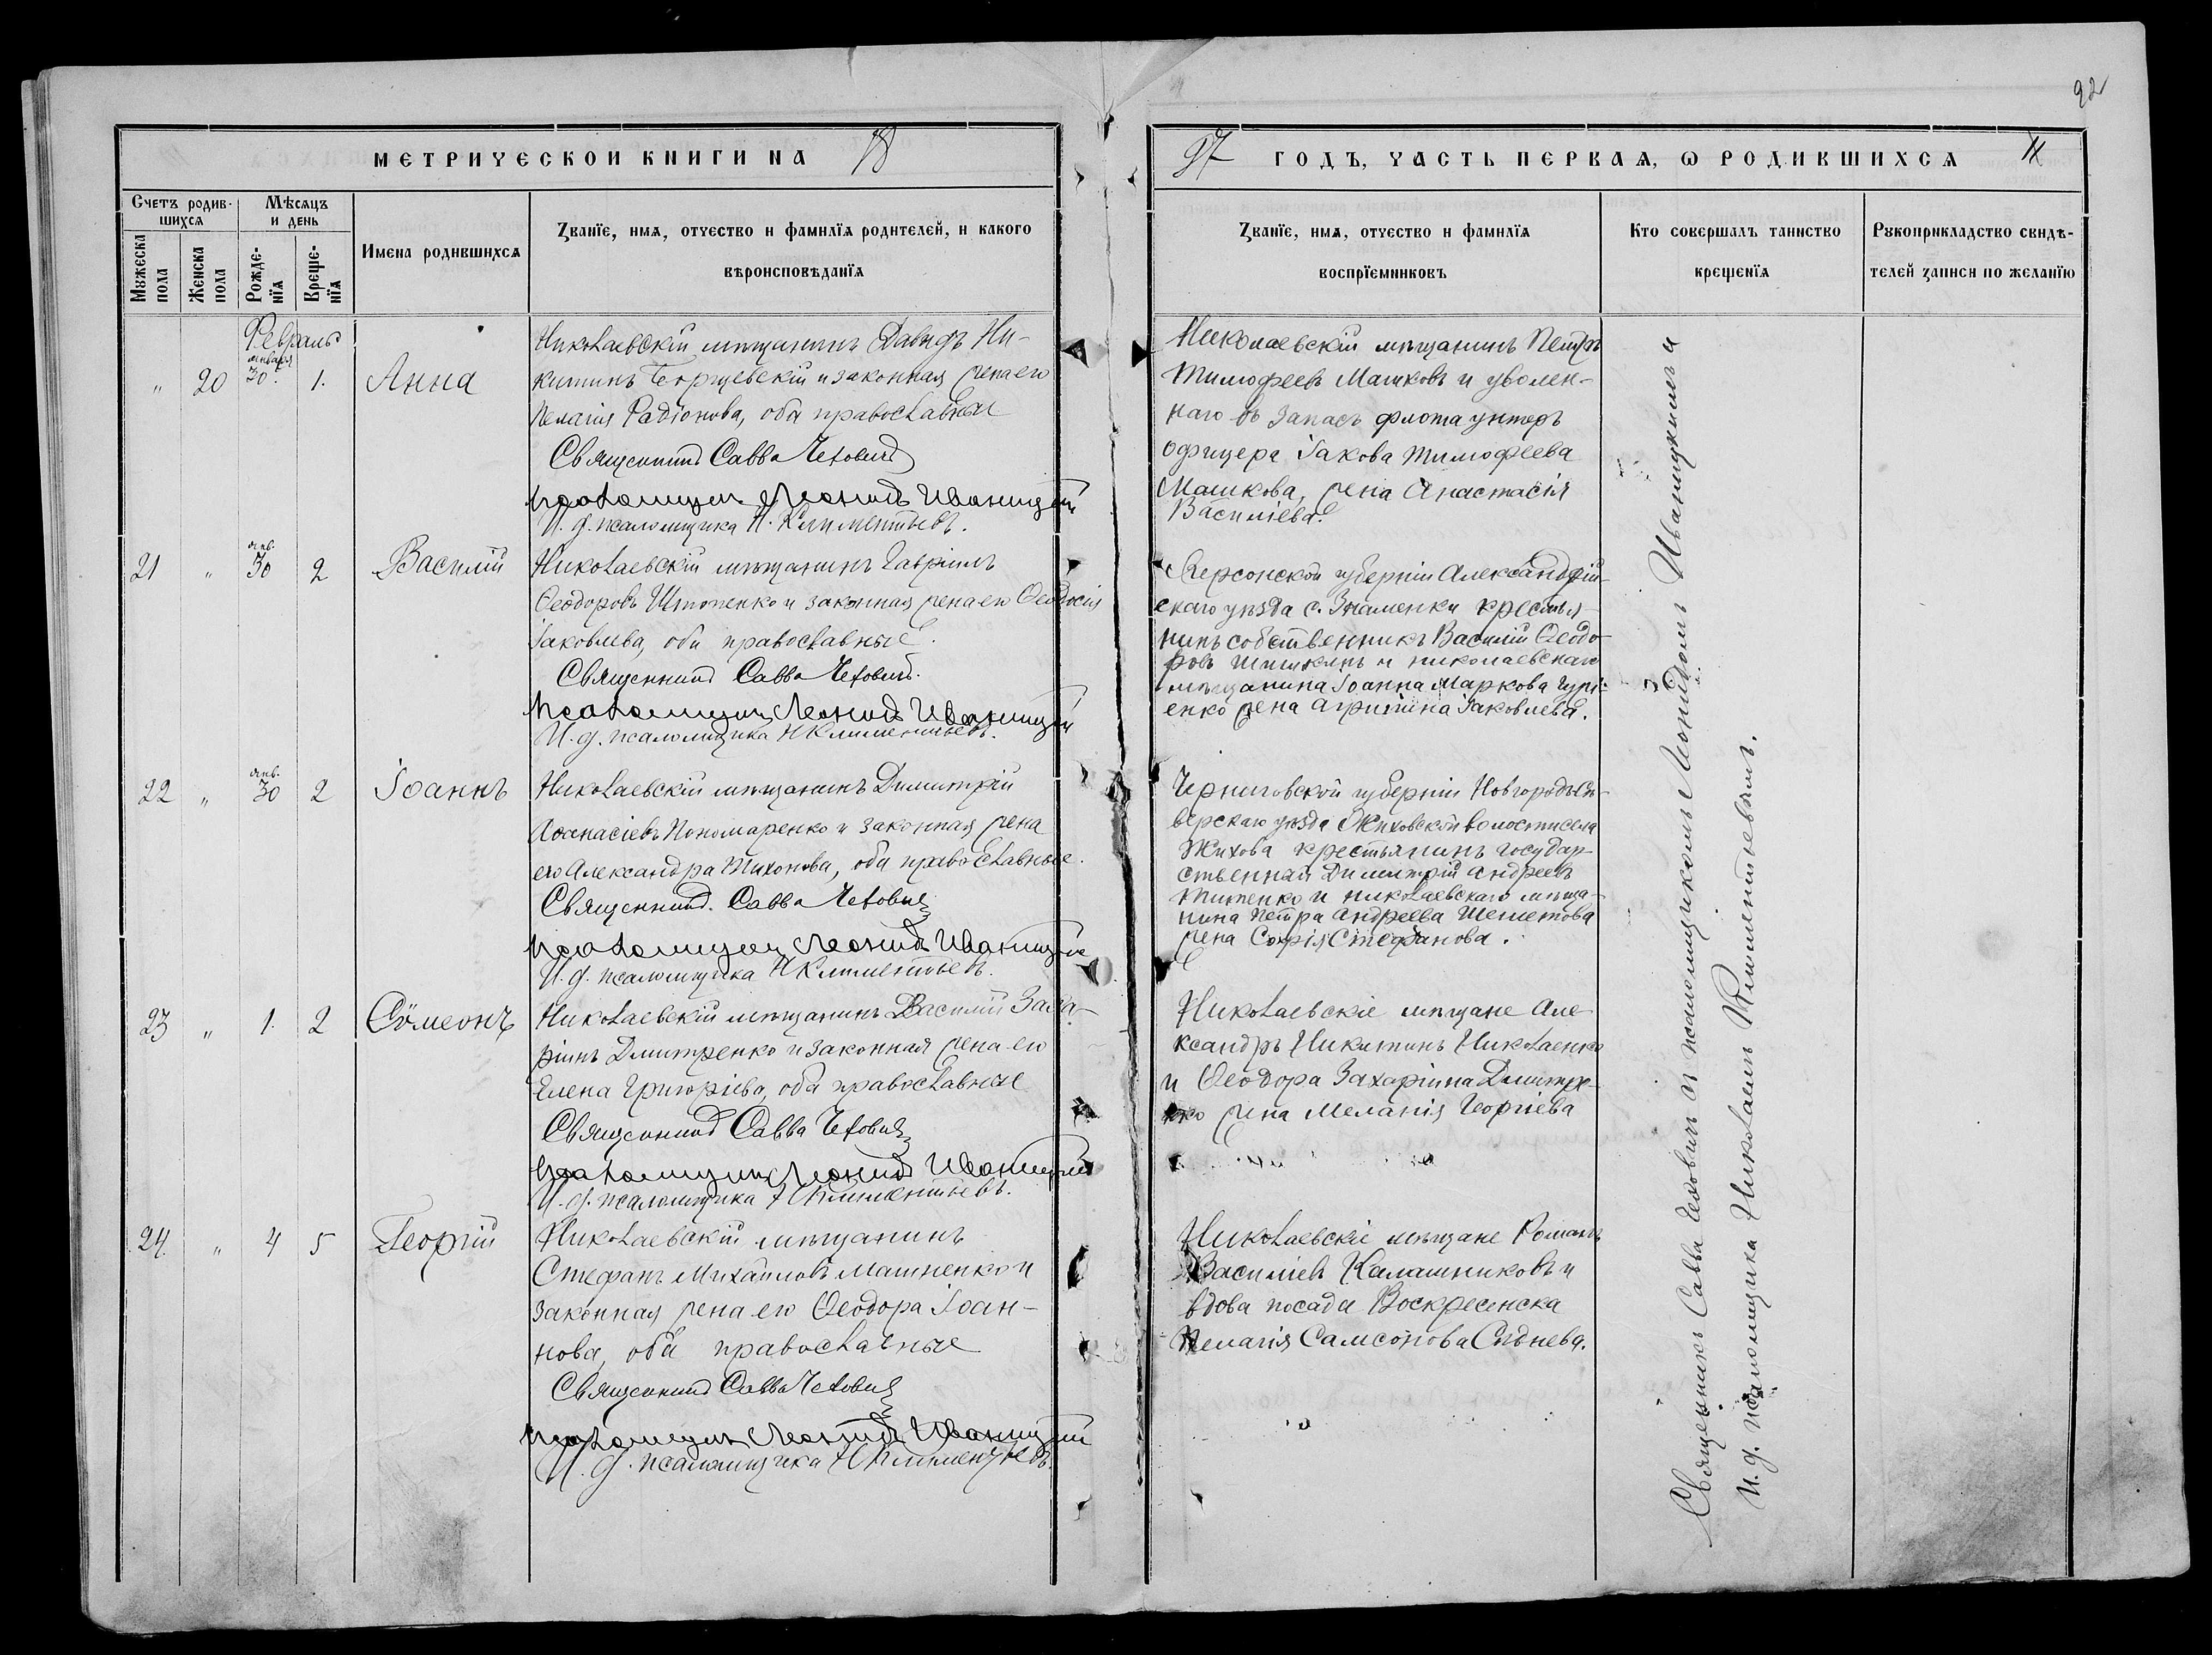 92
МЕТРИЧЕСКОЙ КНИГИ НА 18
97 ГОДЪ, ЧАСТЬ ПЕРВАЯ, Ѡ РОДИВШИХСЯ
Счетъ родив-
шихся
Мѣсяцъ
и день
Мужеска
пола
Женска
пола
Рожде-
нїя
Креще-
нїя
Имена родившихся
Званїе, имя, отчество и фамилїя родителей, и какого
вѣроисповѣданїя
Званїе, имя, отчество и фамилїя
воспрїемниковъ
Кто совершалъ таинство
крещенїя
Рукоприкладство свидѣ-
телей записи по желанїю
Февраль
января
" 20 30. 1. Анна
Николаевскій мѣщанинъ Давидъ Ни-
китинъ и законная жена его
Пелагія Радіонова, оба православные
Священникъ Савва Чехович
Псаломщикъ Леонидъ Иваницкій
И. д. псаломщика Н. Климентьевъ.
Николаевскій мѣщанинъ Петръ
Тимофеевъ Машковъ и уволен-
наго въ запасъ флота унтеръ
офицера Іакова Тимофеева
Машкова, жена Анастасія
Василіева.
янв.
21 " 30 2 Василій
Николаевскій мѣщанинъ Гавріилъ
Ѳеодоровъ и законная жена его Ѳеодосія
Іаковлева, оба православные.
Священникъ Савва Чехович.
Псаломщикъ Леонидъ Иваницкій
И. д. псаломщика Н Климентьевъ.
Херсонской губерніи Александрій-
скаго уѣзда с. Знаменки крестья-
нинъ собственникъ Василій Ѳеодо-
ровъ Шишкинъ и николаевскаго
мѣщанина Іоанна Маркова
енко жена Агрипина Іаковлева.
янв.
22 " 30 2 Іоаннъ
Николаевскій мѣщанинъ Димитрій
Аѳанасіевъ Пономаренко и законная жена
его Александра Тихонова, оба православные.
Священникъ. Савва Чехович
Псаломщикъ Леонидъ Иваницкій
И. д. псаломщика Н Климентьевъ.
Черниговской губерніи Новгородъсѣ-
верскаго уѣзда Жиховской волости села
Жихова крестьянинъ государ-
ственный Димитрій Андреевъ
и николаевскаго мѣща-
нина Петра Андреева Шеметова
жена Софія Стефанова.
23 " 1. 2 Сѵмеонъ
Николаевскій мѣщанинъ Василій Заха-
ріинъ Дмитренко и законная жена его
Елена Григоріева, оба православные
Священникъ Савва Чехович
Псаломщикъ Леонидъ Иваницкій
И. д. псаломщика Н Климентьевъ.
Николаевскіе мѣщане Але-
ксандръ Никитинъ Николаенко
и Ѳеодора Захаріина Дмитре-
нко жена Меланія Георгіева
24. " 4 5 Георгій
Николаевскій мѣщанинъ
Стефанъ Михаиловъ Машненко и
законная жена его Ѳеодора Іоан-
нова, оба православные
Священникъ Савва Чехович
Псаломщикъ Леонидъ Иваницкій
И. д. псаломщика Н Климентьевъ.
Николаевскіе мѣщане Романъ
Василіевъ Калашниковъ и
вдова посада Воскресенска
Пелагія Самсонова
Священникъ Савва Чеховичъ и псаломщикомъ Леонидомъ Иваницкимъ и
И. д. псаломщика Николаемъ Климентьевымъ.